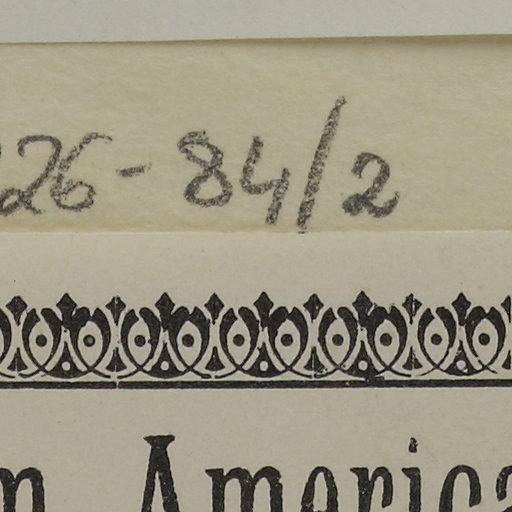 226-84/2
n America